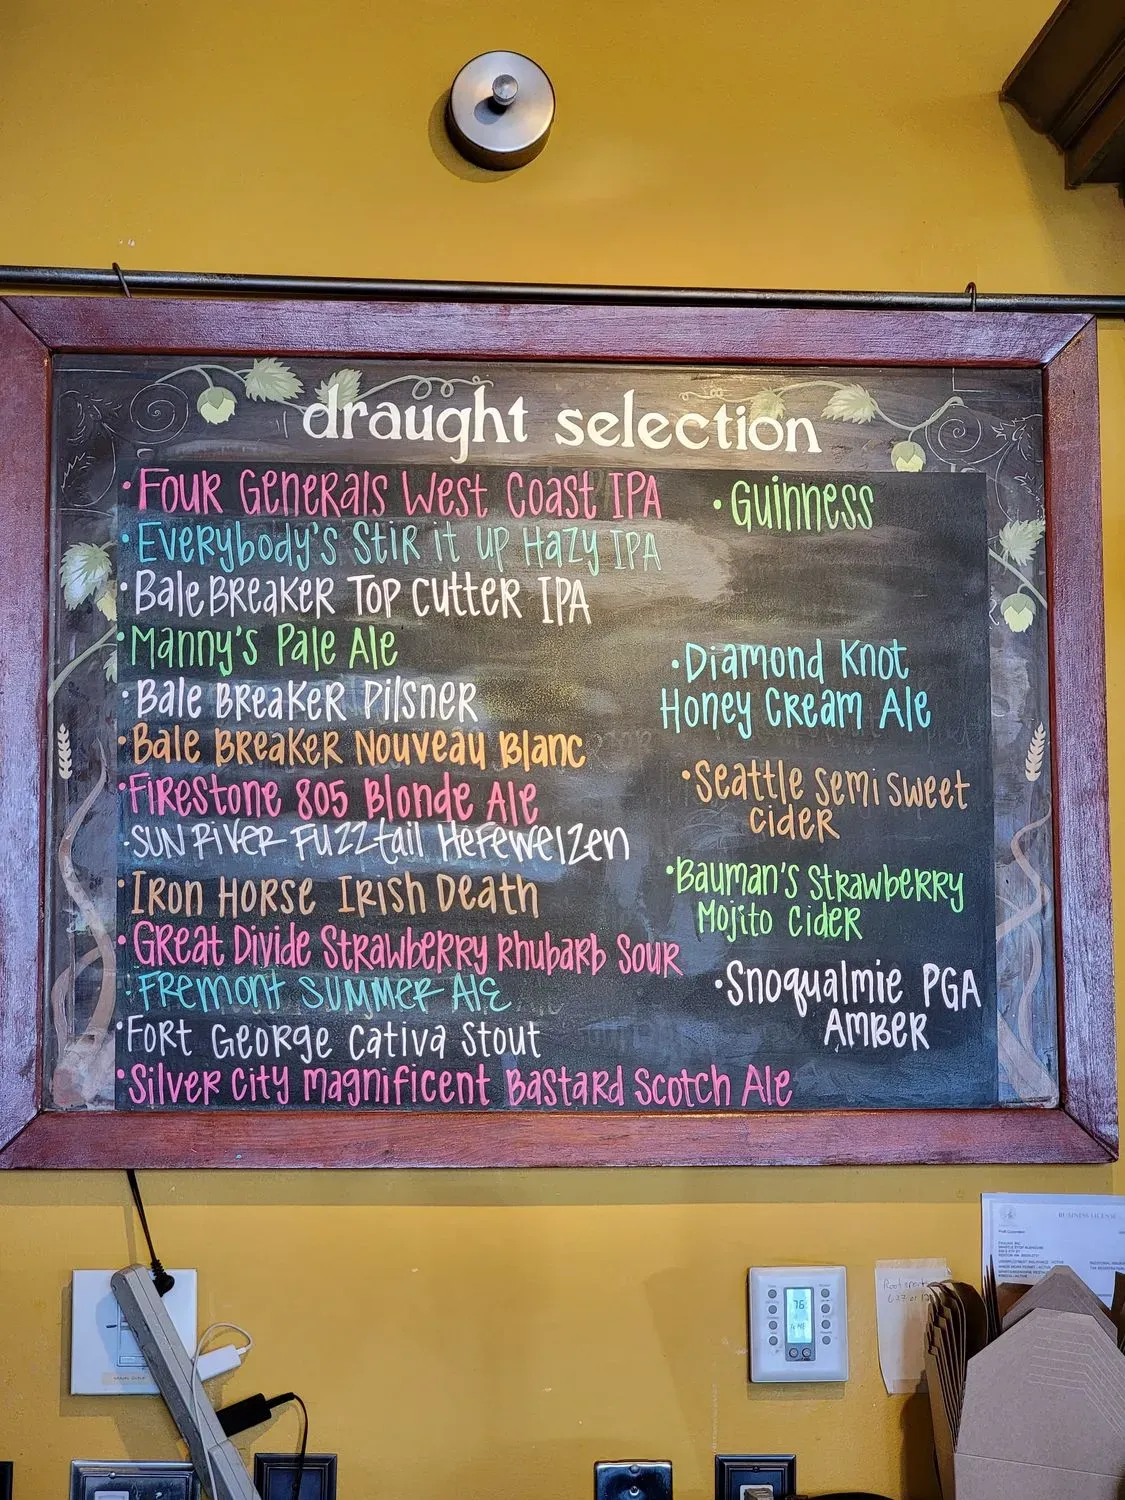 draught selection
·Four Generals West Coast IPA
·Everybody's Stir it up Hazy IPA
·Bale Breaker Top Cutter IPA
·Manny's Pale Ale
·Bale Breaker Pilsner
·Bale Breaker Nouveau Blanc
·Firestone 805 Blonde Ale
·Sun River Fuzztail Hefeweizen
·Iron Horse Irish Death
·Great Divide Strawberry Rhubarb Sour
·Fremont Summer Ale
·Fort George Cativa Stout
·Silver City Magnificent Bastard Scotch Ale
·Guinness
·Diamond Knot
Honey Cream Ale
·Seattle Semi Sweet
Cider
·Bauman's Strawberry
Mojito Cider
·Snoqualmie PGA
Amber
BUSINESS LICENSE
76